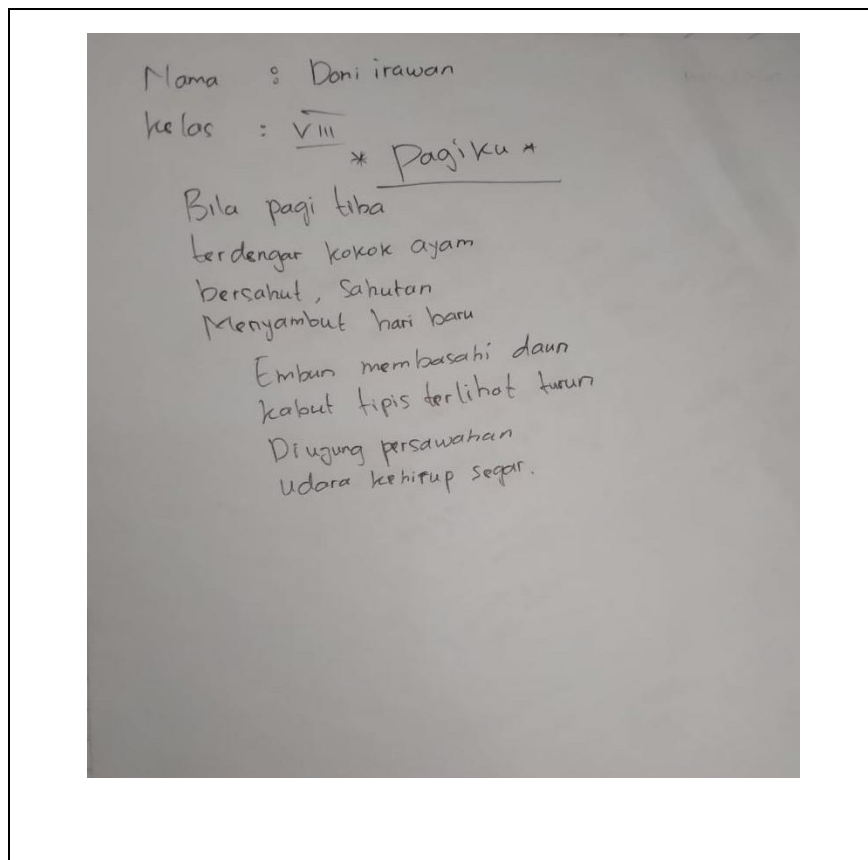 Nama : Doni irawan
kelas : VIII
* Pagiku *
Bila pagi tiba
terdengar kokok ayam
bersahut, Sahutan
Menyambut hari baru
Embun membasahi daun
kabut tipis terlihat turun
Diujung persawahan
udara kehirup segar.